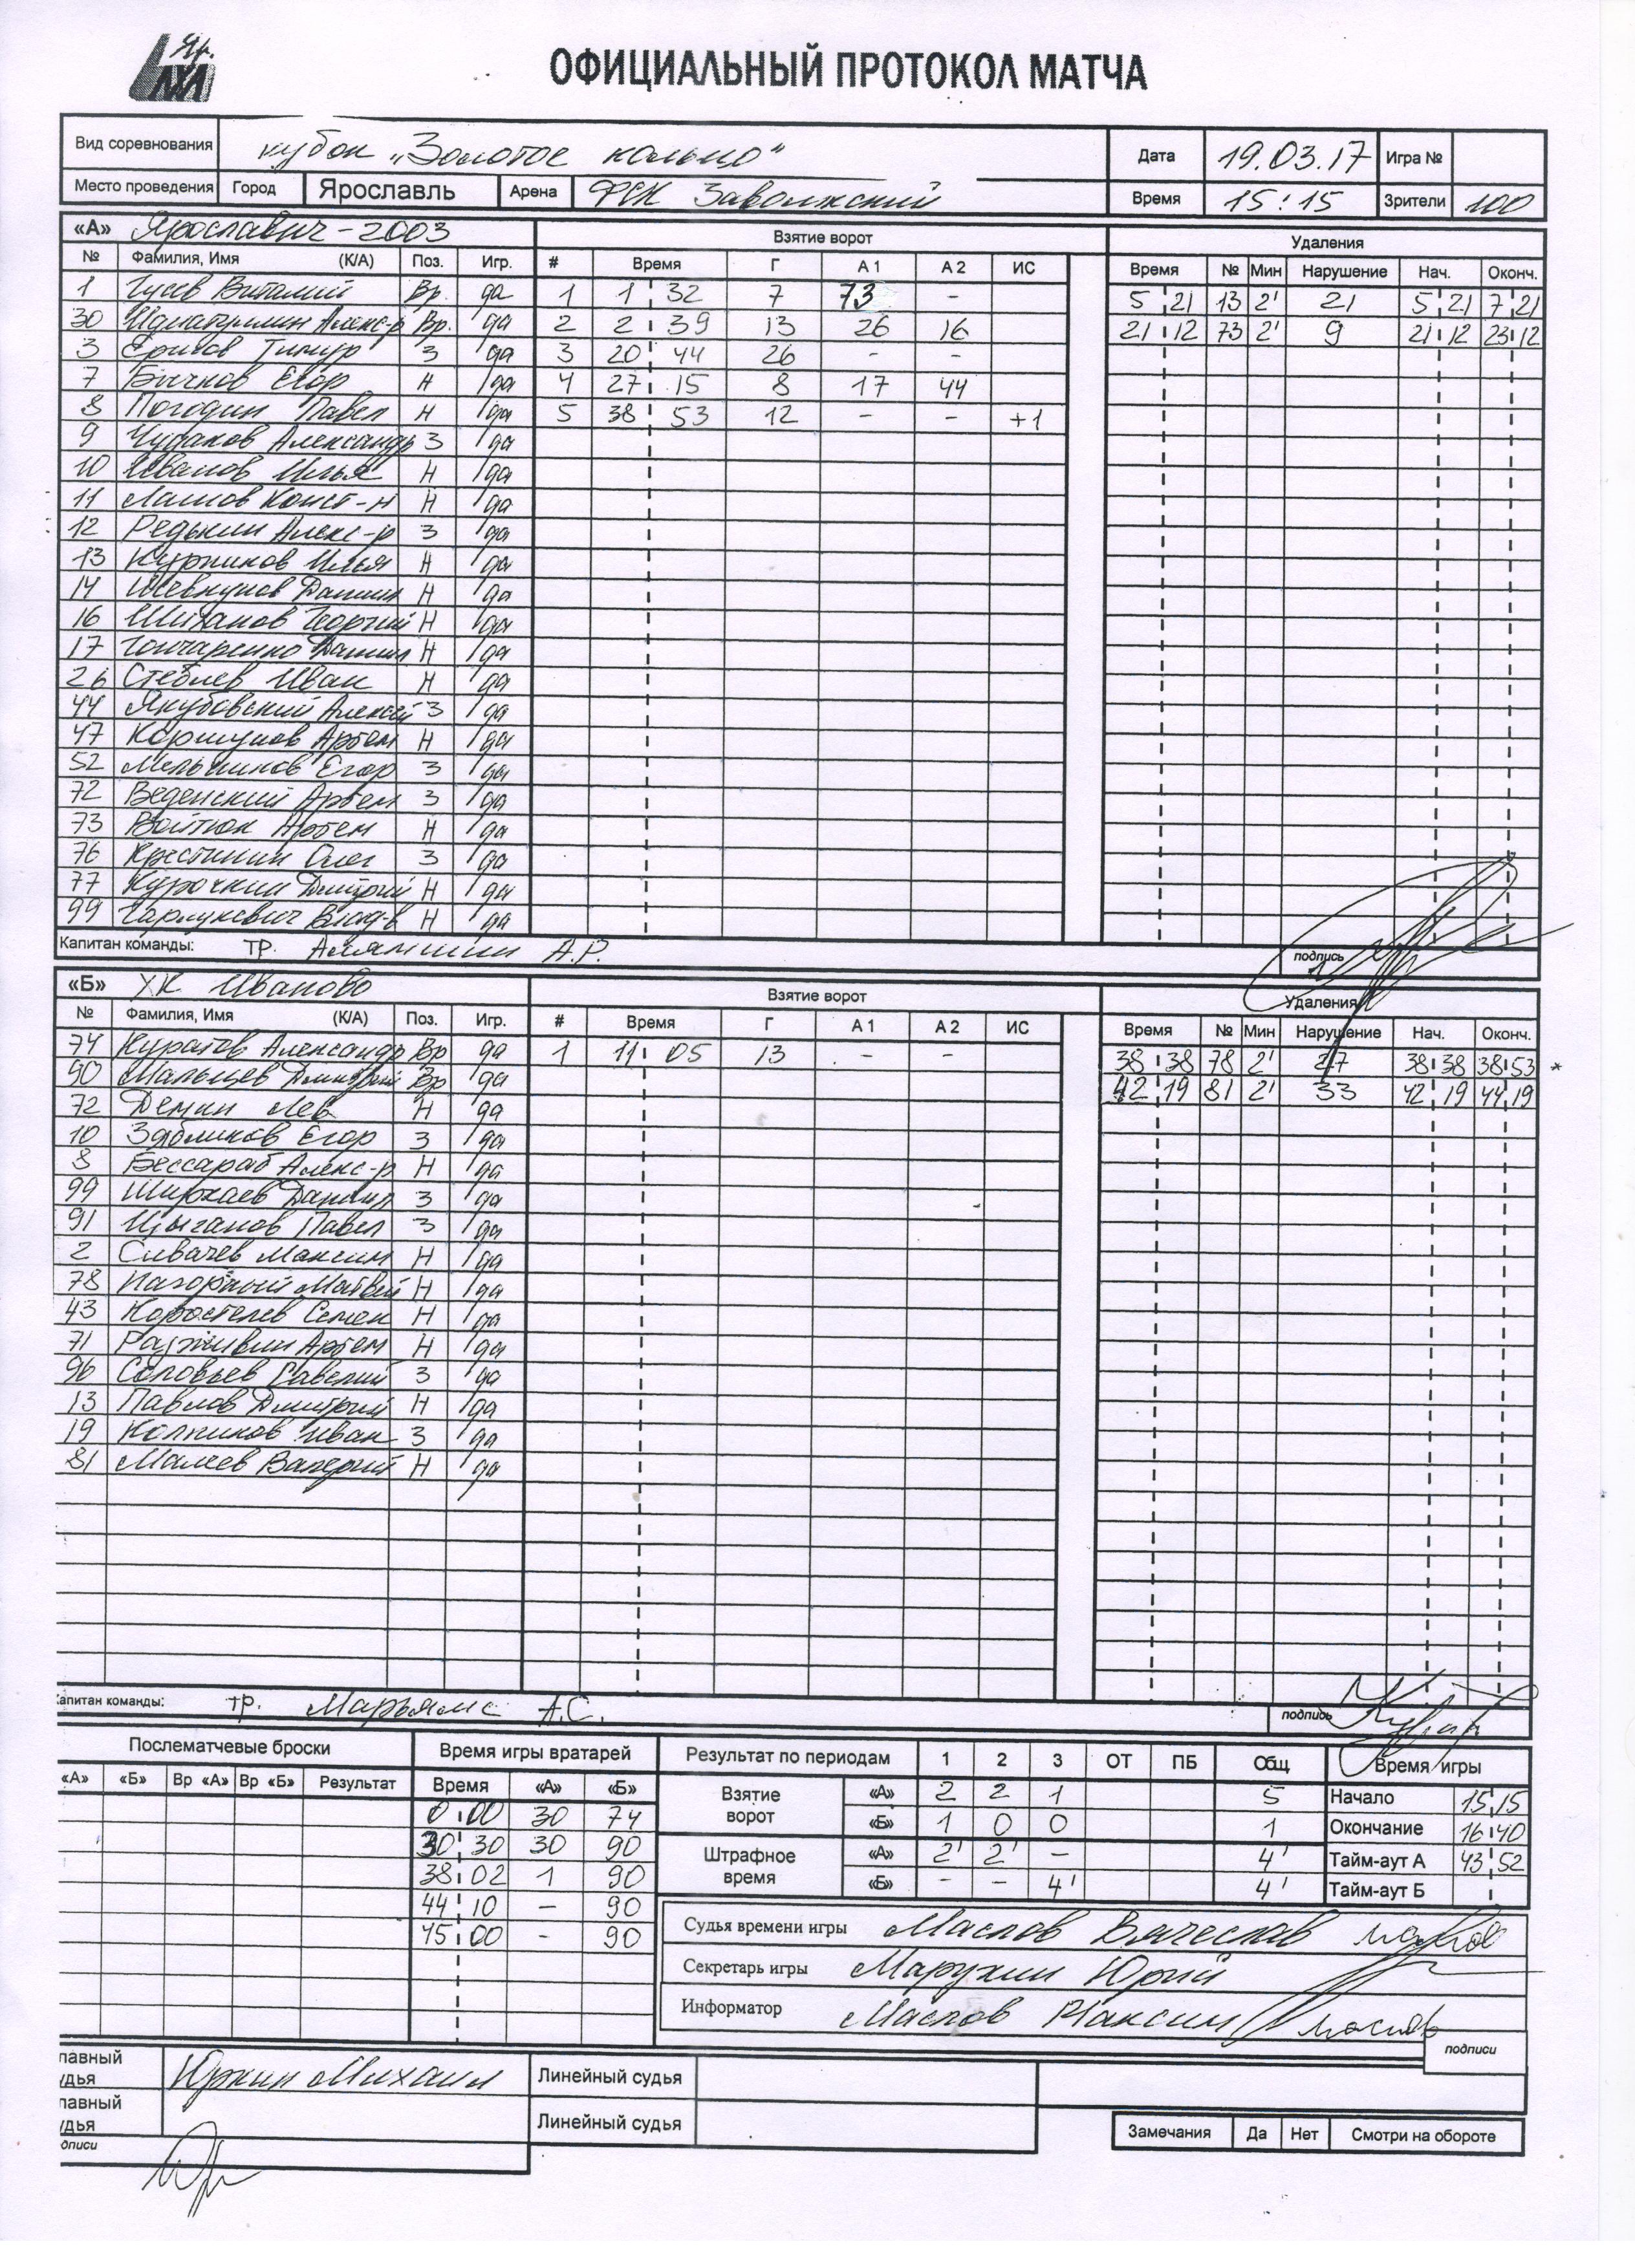 Яр.
ЛХЛ
ОФИЦИАЛЬНЫЙ ПРОТОКОЛ МАТЧА
Вид соревнования кубок „Золотое кольцо" Дата 19.03.17 Игра №
Место проведения Город Ярославль Арена ФСК Заволжский Время 15:15 Зрители 100
«А» Ярославич-2003 Взятие ворот Удаления
№ Фамилия, Имя (К/А) Поз. Игр. # Время Г А1 А2 ИС Время № Мин Нарушение Нач. Оконч.
1 Гусев Виталий Вр. да 1 1 32 7 73 - 5 21 13 2' 21 5 21 7 21
30 Алекс-р Вр. да 2 2 39 13 26 16 21 12 73 2' 9 21 12 23 12
3 Тимур З да 3 20 44 26 - -
7 Бычков Егор Н да 4 27 15 8 17 44
8 Погодин Павел Н да 5 38 53 12 - - +1
9 Чудаков Александр З да
10 Иванов Илья Н да
11 Конст-н Н да
12 Редькин Алекс-р З да
13 Курников Илья Н да
14 Шевкунов Даниил Н да
16 Шиханов Георгий Н да
17 Гончаренко Даниил Н да
26 Стеблев Иван Н да
44 Якубовский Алексей З да
47 Коршунов Артем Н да
52 Мельников Егор З да
72 Веденский Артем З да
73 Войтюк Артем Н да
76 Крестинин Олег З да
77 Курочкин Дмитрий Н да
99 Гарлукевич Влад-в Н да
Капитан команды: тр. Аляпшин А.Р. подпись
«Б» ХК Иваново Взятие ворот Удаления
№ Фамилия, Имя (К/А) Поз. Игр. # Время Г А1 А2 ИС Время № Мин Нарушение Нач. Оконч.
74 Куратов Александр Вр да 1 11 05 13 - - 38 38 78 2' 27 38 38 38 53 *
90 Мальцев Дмитрий Вр да 42 19 81 2' 33 42 19 44 19
72 Демин Лев Н да
10 Зябликов Егор З да
8 Бессараб Алекс-р Н да
99 Ширхаев Даниил З да
91 Цыганов Павел З да
2 Сивачев Максим Н да
78 Нагорный Матвей Н да
43 Коростелев Семен Н да
71 Разживин Артем Н да
96 Соловьев Савелий З да
13 Павлов Дмитрий Н да
19 Колпиков Иван З да
81 Малеев Валерий Н да
апитан команды: тр. Марьямс А.С. подпись
Послематчевые броски Время игры вратарей Результат по периодам 1 2 3 ОТ ПБ Общ Время игры
«А» «Б» Вр «А» Вр «Б» Результат Время «А» «Б»
Взятие ворот «А» 2 2 1 5 Начало 15 15
0 00 30 74
«Б» 1 0 0 1 Окончание 16 40
30 30 30 90
Штрафное время «А» 2' 2' - 4' Тайм-аут А 43 52
38 02 1 90
«Б» - - 4' 4' Тайм-аут Б
44 10 - 90
45 00 - 90
Судья времени игры Маслов Вячеслав
Секретарь игры Марухин Юрий
Информатор Маслов Максим
подписи
лавный удья Юркин Михаил Линейный судья
лавный удья Линейный судья
дписи
Замечания Да Нет Смотри на обороте